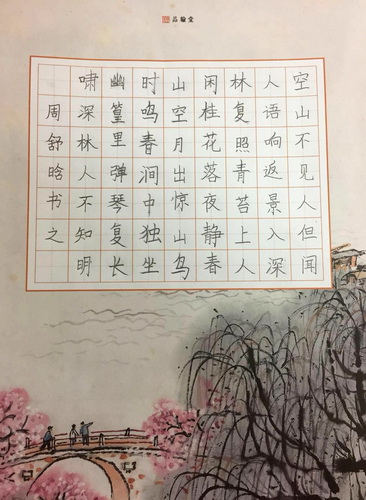 品翰堂
空山不见人但闻
人语响返景入深
林复照青苔上人
闲桂花落夜静春
山空月出惊山鸟
时鸣春涧中独坐
幽篁里弹琴复长
啸深林人不知明
周舒晗书之